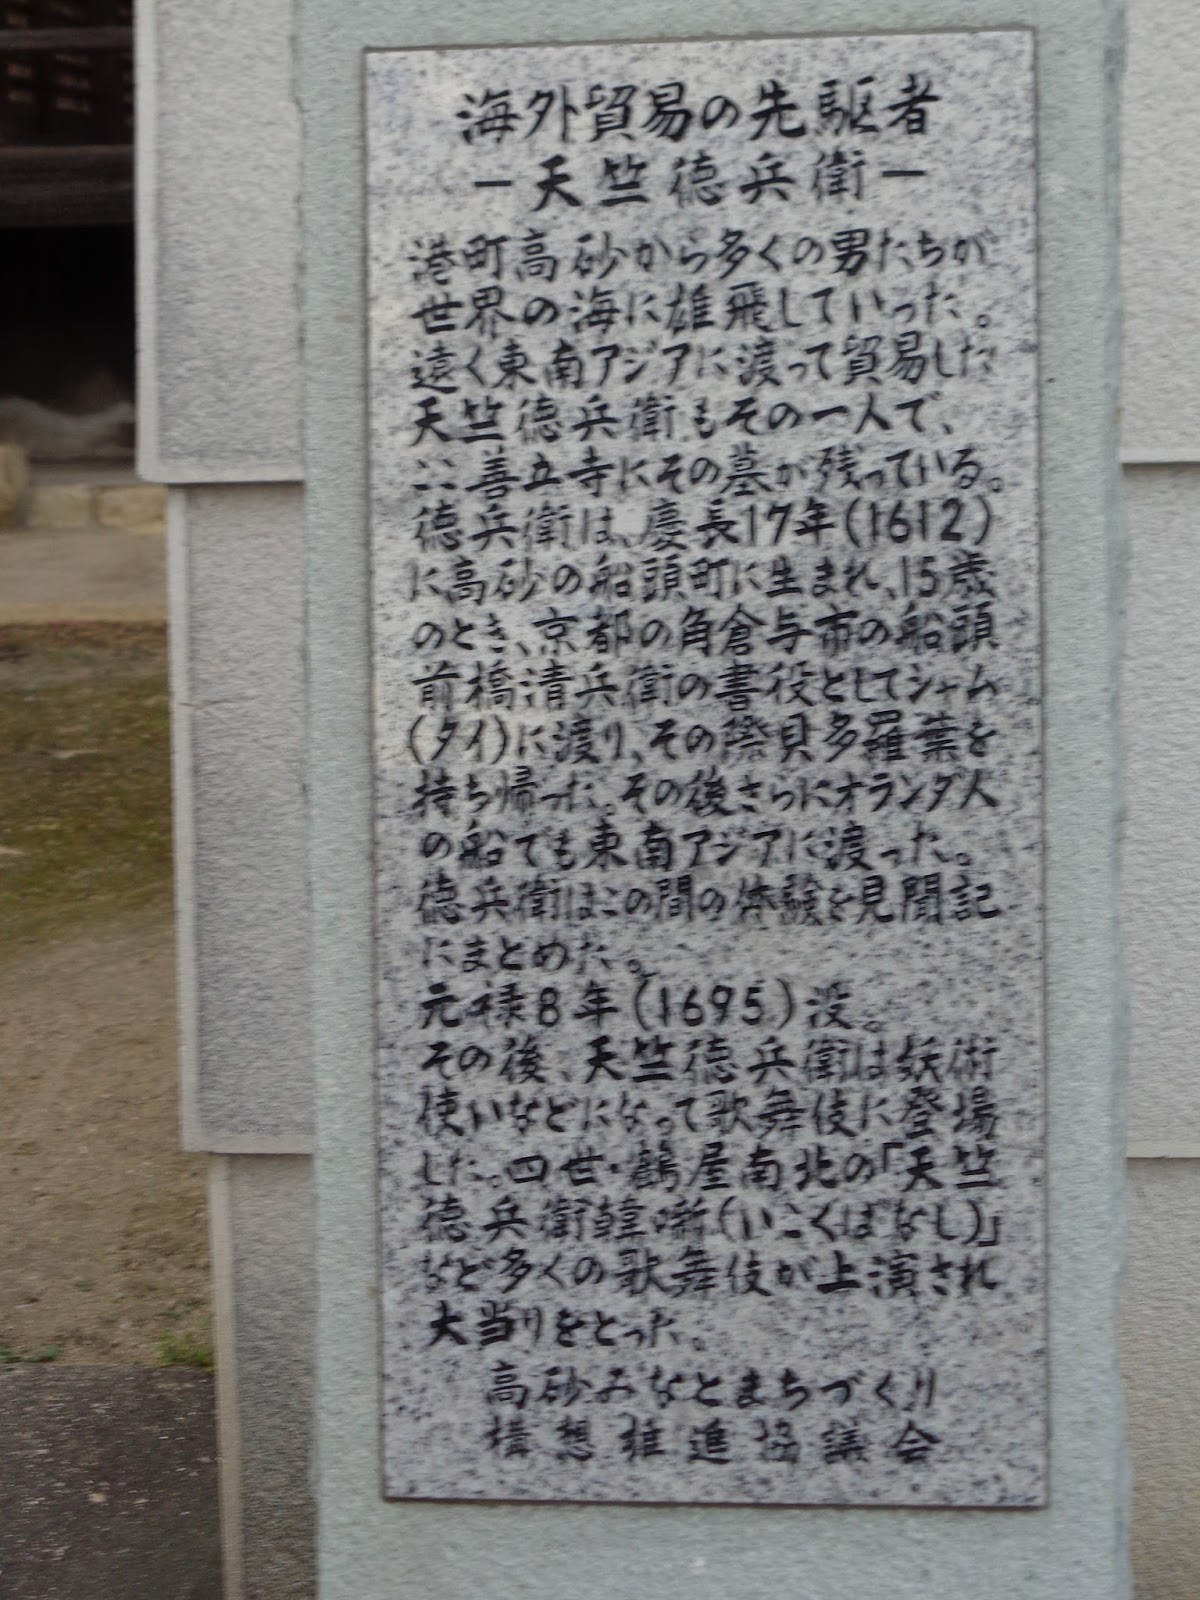 海外貿易の先駆者
－天竺徳兵衛－
港町高砂から多くの男たちが
世界の海に雄飛していった。
遠く東南アジアに渡って貿易した
天竺徳兵衛もその一人で、
ここ善立寺にその墓が残っている。
徳兵衛は、慶長17年(1612)
に高砂の船頭町に生まれ、15歳
のとき、京都の角倉与市の船頭
前橋清兵衛の書役としてシャム
(タイ)に渡り、その際貝多羅葉を
持ち帰った。その後さらにオランダ人
の船でも東南アジアに渡った。
徳兵衛はこの間の体験を見聞記
にまとめた。
元禄8年(1695)没。
その後、天竺徳兵衛は妖術
使いなどになって歌舞伎に登場
した。四世・鶴屋南北の「天竺
徳兵衛韓噺(いこくばなし)」
など多くの歌舞伎が上演され
大当りをとった。
高砂みなとまちづくり
構想推進協議会